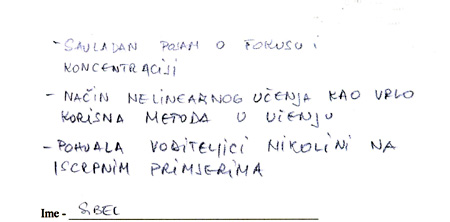 - SAVLADAN POJAM O FOKUSU I
KONCENTRACIJI
- NAČIN NELINEARNOG UČENJA KAO VRLO
KORISNA METODA U UČENJU
- POHVALA VODITELJICI NIKOLINI NA
ISCRPNIM PRIMJERIMA
Ime - SIBEL